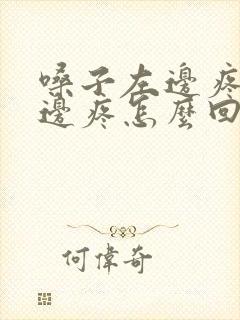 嗓子左邊疼
邊疼怎麼回
何偉奇